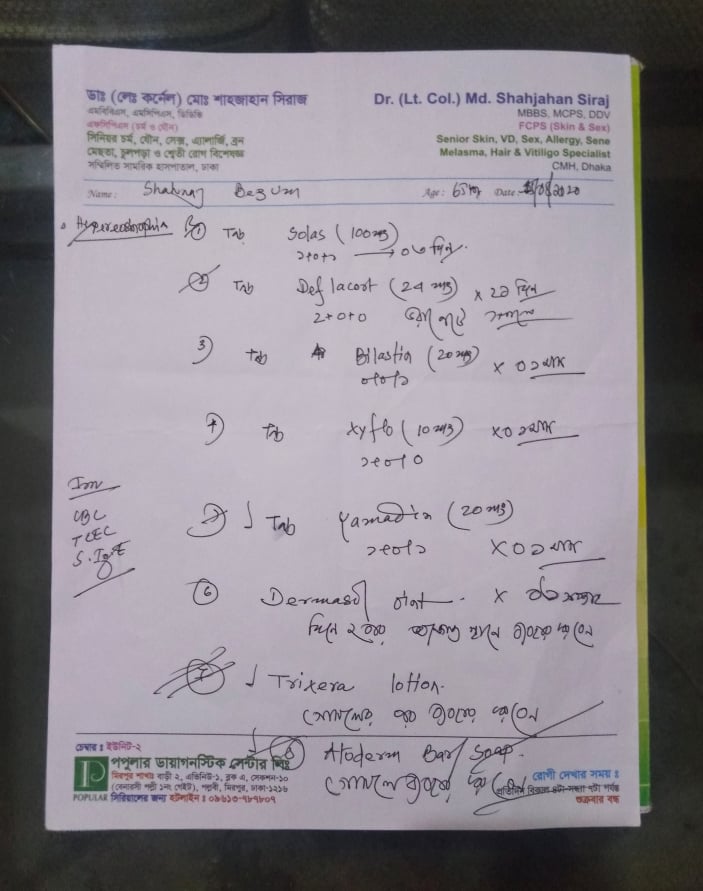 ডাঃ (লেঃ কর্নেল) মোঃ শাহজাহান সিরাজ
এমবিবিএস, এমসিপিএস, ডিডিভি
এফসিপিএস (চর্ম ও যৌন)
সিনিয়র চর্ম, যৌন, সেক্স, এ্যালার্জি, ব্রন
মেছতা, চুলপড়া ও শ্বেতী রোগ বিশেষজ্ঞ
সম্মিলিত সামরিক হাসপাতাল, ঢাকা
Dr. (Lt. Col.) Md. Shahjahan Siraj
MBBS, MCPS, DDV
FCPS (Skin & Sex)
Senior Skin, VD, Sex, Allergy, Sene
Melasma, Hair & Vitiligo Specialist
CMH, Dhaka
Name: Begum Age: Date
① Tab Solas (100
Tab Deflacort (24 ×
2+0+0
3) Tab Bilastin (20 × ০১ মাস
০+০+১
Tab (10 ×০১ মাস
১+০+০
Inv
CBC
S. IgE
Tab Yamadin (20
১+০+১ ×০১ মাস
⑥ Dermasol ×
দিনে ২ বার স্থানে ব্যবহার করবেন
Trixera lotion.
গোসলের পর ব্যবহার করবেন
⑧ Atoderm Bar Soap.
গোসলে ব্যবহার
চেম্বার : ইউনিট-২
পপুলার ডায়াগনস্টিক সেন্টার লিঃ
মিরপুর শাখাঃ বাড়ী ২, এভিনিউ-১, ব্লক এ, সেকশন-১০
(বেনারসী পল্লী ১নং গেইট), পল্লবী, মিরপুর, ঢাকা-১২১৬
POPULAR সিরিয়ালের জন্য হটলাইন : ০৯৬১৩-৭৮৭৮০৭
রোগী দেখার সময় :
প্রতিদিন বিকাল পর্যন্ত
শুক্রবার বন্ধ